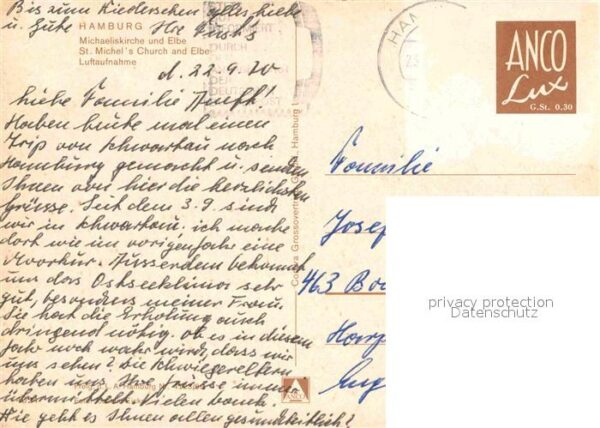 Bis zum Wiedersehen alles liebe
u. Gute Ihre
HAMBURG
Michaeliskirche und Elbe
St. Michel's Church and Elbe
Luftaufnahme
d. 22.9.70
Liebe Familie
Haben heute mal einen
Trip von Schwartau nach
Hamburg gemacht u. senden
Ihnen von hier die herzlichsten
Grüsse. Seit dem 3.9 sind
wir in Schwartau. ich mache
dort wie im vorigen Jahr eine
Moorkur. Ausserdem bekommt
uns das Ostseeklima sehr
gut, besonders meiner Frau.
Sie hat die Erholung auch
dringend nötig. ob es in diesem
Jahr noch wahr wird, dass wir
uns sehen? die Schwiegereltern
haben uns Ihre Grüsse immer
übermittelt. Vielen Dank.
Wie geht es Ihnen allen gesundheitlich?
HAM
ANCO
Lux
G.St. 0.30
Familie
Josef
463 Bo
privacy protection
Datenschutz